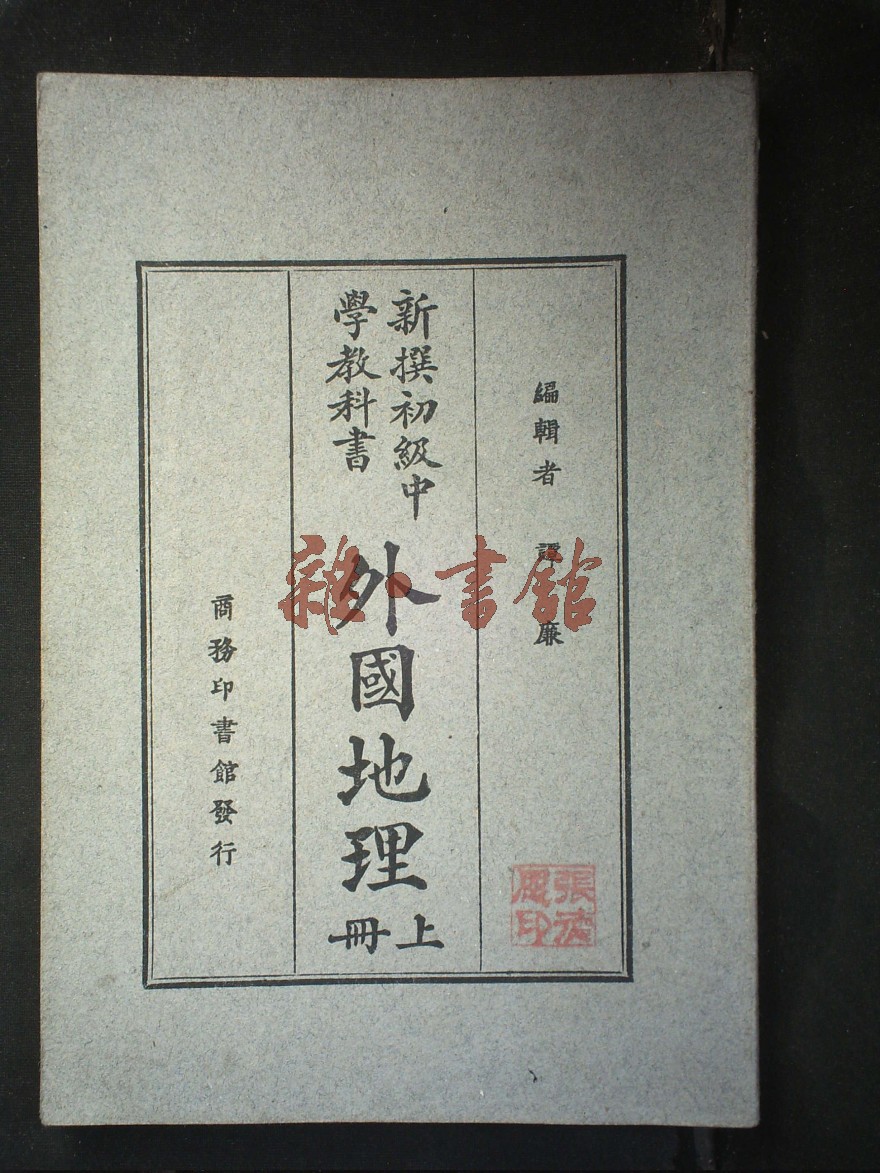 編輯者 譚廉
新撰初級中
學教科書
外國地理
上冊
商務印書館發行
雜·書館